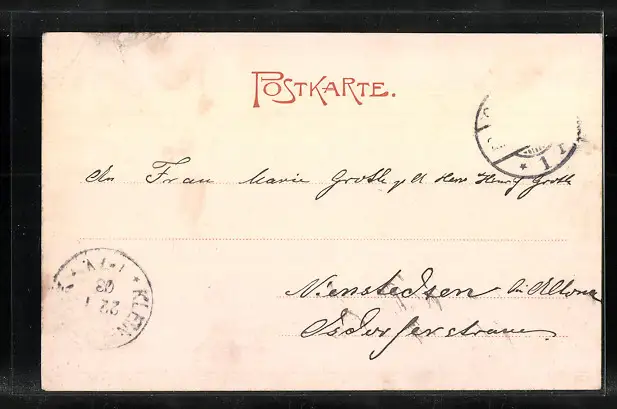 POSTKARTE.
An Frau Marie Groth p. A. Herr Henry Groth
Nienstedten bei Altona
Isdorferstrasse
* 1 r
KLEIN
22 1
03